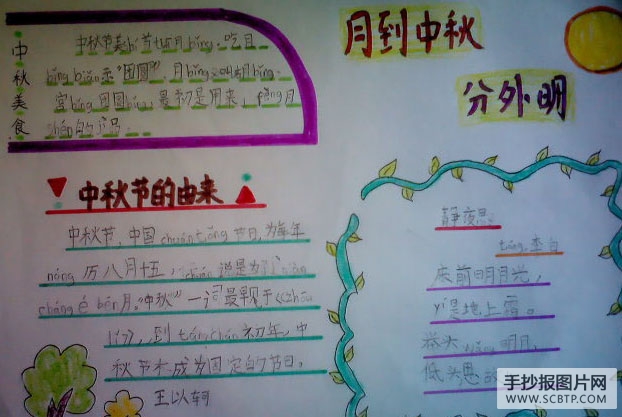 月到中秋
分外明
中秋美食
中秋节美 bǐ 首 tuī 月 bǐng. 吃月
bǐng biǎo 示"团圆"。月 bǐng
宫 bǐng 团圆 bǐng，最初是用来 fèng 月
shén 的
中秋节的由来
中秋节，中国 chuán tǒng 节日，为每年
nóng 历八月十五，说是为了
cháng é bēn 月。"中秋"一词最早见于《zhōu
lǐ》，到 táng cháo 初年，中
秋节才成为固定的节日，
王以轲
静夜思
táng 李白
床前明月光，
yí 是地上霜。
举头 wàng 明月，
低头思
手抄报图片网
WWW.SCBTP.COM